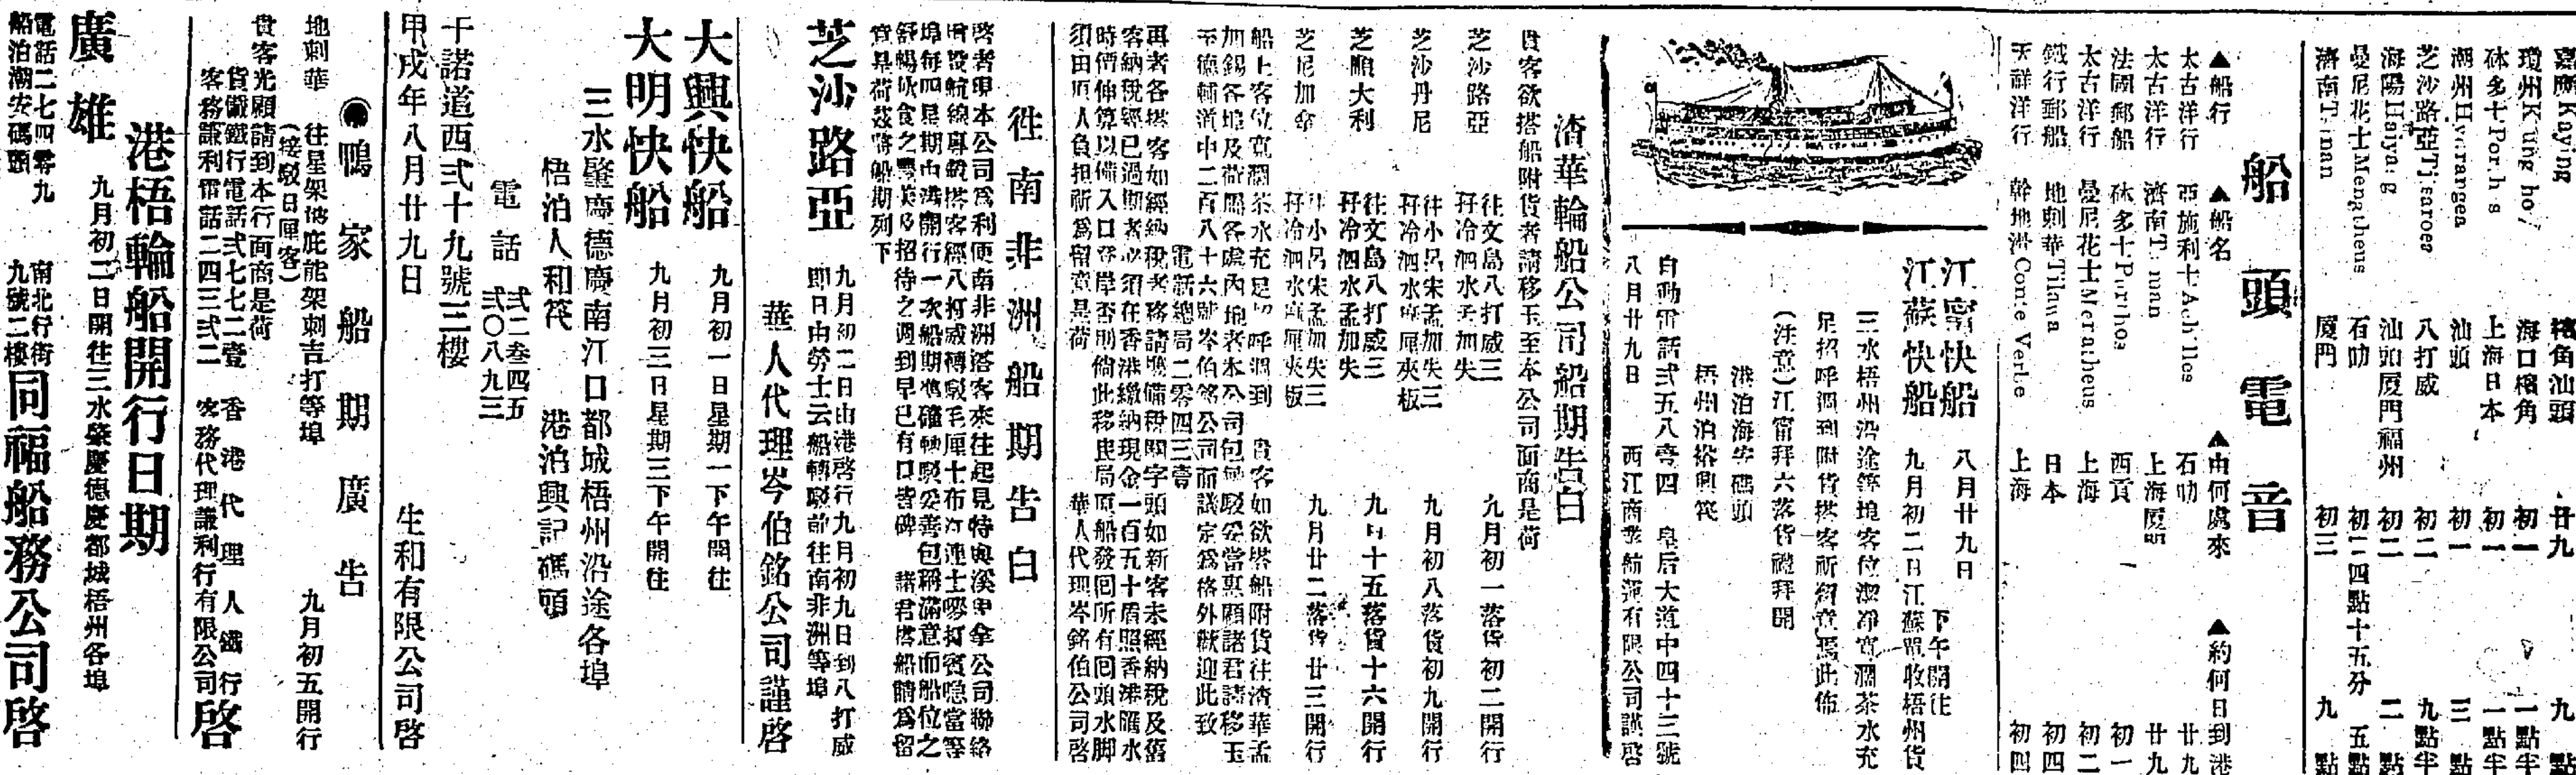 嘉應Kaying 檳角汕頭 廿九 九點
瓊州Kiung 海口檳角 初一 一點半
砵多士Porthos 上海日本 初一 一點半
潮州Hydrangea 汕頭 初一 三點
芝沙路亞Tjisaroea 八打威 初二 九點半
海陽Haiyang 汕頭厦門福州 初二 二點
曼尼花士Menestheus 石叻 初二四點十五分 五點
濟南Tsinan 厦門 初三 九點
船頭電音
▲船行 ▲船名 ▲由何處來 ▲約何日到港
太古洋行 亞施利士Achilles 石叻 廿九
太古洋行 濟南Tsinan 上海厦門 廿九
法國郵船 砵多士Porthos 西貢 初一
太古洋行 曼尼花士Menestheus 上海 初二
鐵行郵船 地刺華Tilawa 日本 初四
天祥洋行 幹地港Conte Verde 上海 初四
江甯快船 八月廿九日 下午開往
江蘇快船 九月初二日江蘇單收梧州貨
三水梧州沿途等埠客位潔淨寬濶茶水充
足招呼週到附貨搭客祈留意焉此佈
(注意)江甯拜六落貨禮拜開
港泊海安碼頭
梧州泊裕興筏
自動電話弍五八壹四 皇后大道中四十三號
八月廿九日 西江商業航運有限公司謹啓
渣華輪船公司船期告白
貴客欲搭船附貨者請移玉至本公司面商是荷
芝沙路亞 往文島八打威三孖冷泗水孟加失 九月初一落貨初二開行
芝沙丹尼 往小呂宋孟加失三孖冷泗水廣厘夾板 九月初八落貨初九開行
芝順大利 往文島八打威三孖冷泗水孟加失 九月十五落貨十六開行
芝尼加拿 往小呂宋孟加失三孖冷泗水廣厘夾板 九月廿二落貨廿三開行
船上客位寬濶茶水充足招呼週到 貴客如欲搭船附貨往渣華孟
加錫各埠及荷屬各處內地者本公司包辦駁妥當惠顧諸君請移玉
至德輔道中二百八十六號岑伯銘公司面議定爲格外歡迎此致
電話總局二零四三壹
再者各搭客如經納稅者務請攜備稅關字頭如新客未經納稅及舊
客納稅經已過期者必須在香港繳納現金一百五十盾照香港匯水
時價伸算以備入口登岸否則倘此移民局原船發囘所有囘頭水脚
須由原人負担祈爲留意是荷 華人代理岑銘伯公司啓
徃南非洲船期告白
啓者本公司爲利便南非洲搭客來往起見特與溪申拿公司聯絡
增設航線專載搭客經八打威轉駁毛厘士布
埠每四星期由港開行一次船期準確轉駁妥善包稱滿意而船位之
舒暢飲食之豐美及招待之週到早已有口皆碑 諸君搭船請爲留
意是荷茲將船期列下
芝沙路亞 九月初二日由港啓行九月初九日到八打威
即日由勞士云船轉駁前往南非洲等埠
華人代理岑伯銘公司謹啓
大興快船 九月初一日星期一下午開往
大明快船 九月初三日星期三下午開往
三水肇慶德慶南江口都城梧州沿途各埠
梧泊人和筏 港泊興記碼頭
電話 弍二叁四五
弍〇八九三
干諾道西弍十九號三樓
甲戌年八月廿九日 生和有限公司啓
鴨家船期廣告
地刺華 往星架坡庇能架刺吉打等埠 九月初五開行
(接駁日厘客)
貴客光顧請到本行面商是荷
貨儎鐵行電話弍七七二壹 香港代理人鐵行
客務謙利電話二四三弍二 客務代理謙利行有限公司啓
港梧輪船開行日期
廣雄 九月初二日開往三水肇慶德慶都城梧州各埠
電話二七四零九 南北行街
船泊潮安碼頭 九號二樓 同福船務公司啓